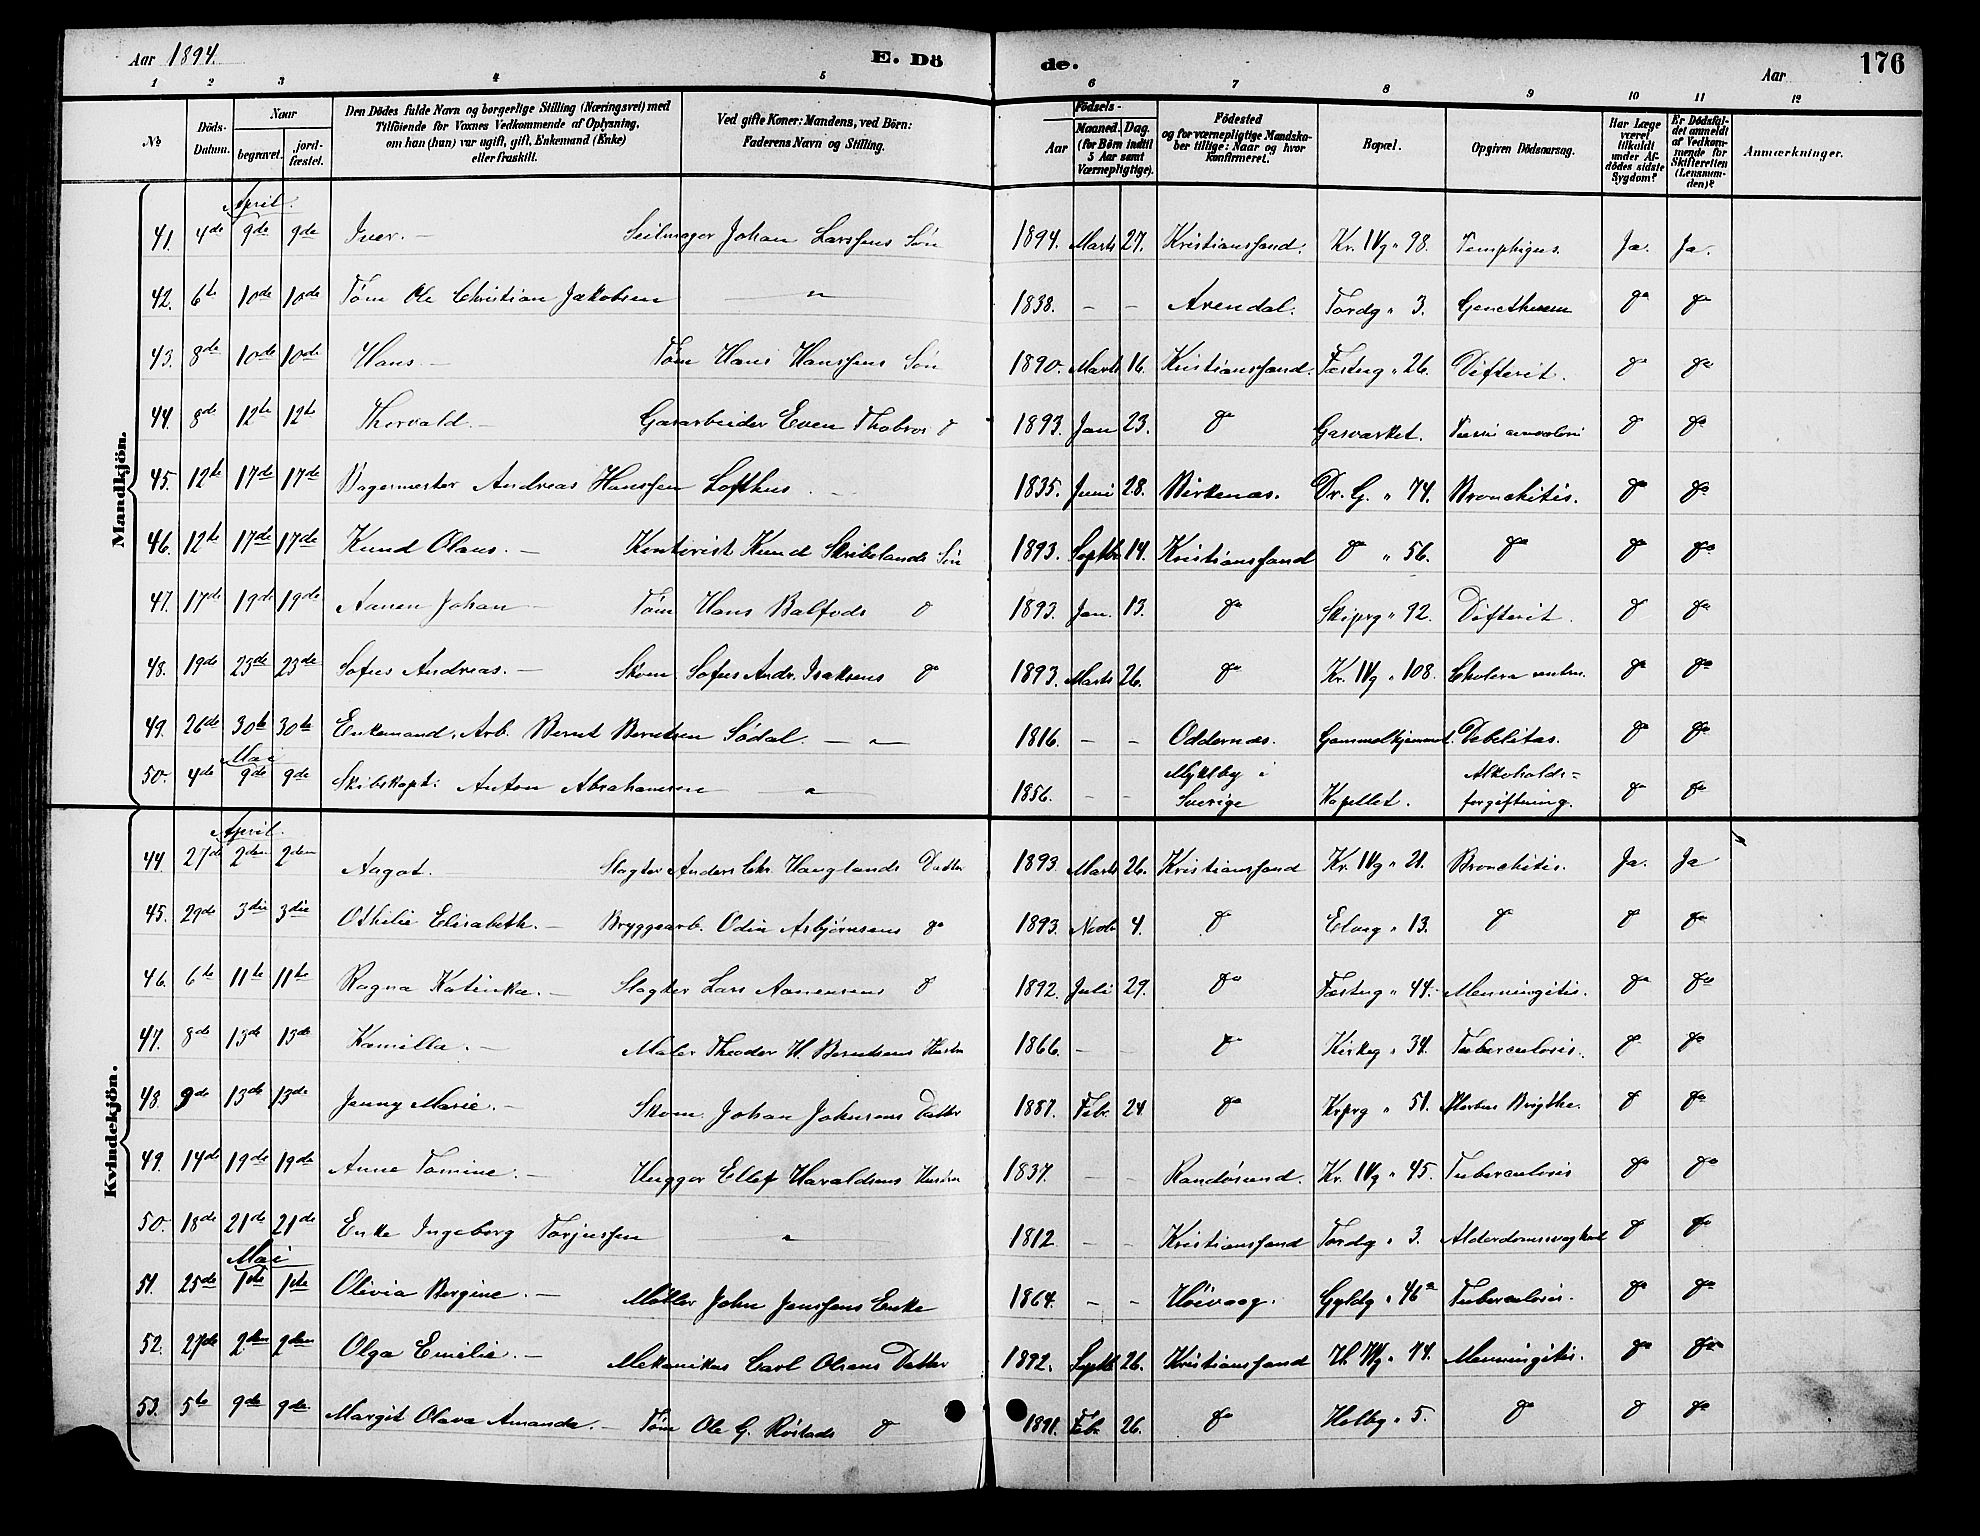 Aar 1894. E. Dö de. Aar 176
1 2 3 4 5 6 7 8 9 10 11 12
№
Döds-Datum.
Naar
begravet. jord-fæstet.
Den Dödes fulde Navn og borgerlige Stilling (Næringsvei) med
Tilföiende for Voxnes Vedkommende af Oplysning,
om han (hun) var ugift, gift, Enkemand (Enke)
eller fraskilt.
Ved gifte Koner: Mandens, ved Börn:
Faderens Navn og Stilling.
Födsels-
Aar
Maaned. Dag.
(for Börn indtil
5 Aar samt
Værnepligtige).
Födested
og for værnepligtige Mandska-
ber tillige: Naar og hvor
konfirmeret.
Bopæl.
Opgiven Dödsaarsag.
Har Læge
været
tilkaldt
under Af-
dödes sidste
Sygdom?
Er Dödsfal-
det anmeldt
af Vedkom-
mende for
Skifteretten
(Lensman-
den)?
Anmærkninger.
Mandkjön.
April.
41. 4de 9de 9de Iver. — Seilmager Johan Larssens Søn 1894. Marts 27. Kristianssand. Kr. IVg " 98. Pemphigus. Ja. Ja.
42. 6te 10de 10de Tøm Ole Christian Jakobsen " 1838. – – Arendal. Tordg " 3. do do
43. 8de 10de 10de Hans. — Tøm Hans Hanssens Søn 1890. Marts 16. Kristianssand. Fæstng " 26. Difterit. do do
44. 8de 12te 12te Thorvald. — Gasarbeider Even do 1893. Jan 23. do Gasværket. do do
45. 12te 17de 17de Bagermester Andreas Hanssen Lofthus. — 1835. Juni 28. Birkenæs. Dr. G. " 74. Bronchitis. do do
46. 12te 17de 17de Knud Olaus. — Kontorist Knud Skibelands Søn 1893. Septbr 14. Kristianssand do " 56. do do do
47. 17de 19de 19de Aanen Johan — Tøm Hans Balfods do 1893. Jan. 13. do Skiprg " 92. Difterit. do do
48. 19de 23de 23de Sofus Andreas. — Skom. Sofus Andr. Isaksens do 1893. Marts 26. do Kr. IVg " 108. Cholera do do
49. 26de 30te 30te Enkemand, Arb. Bernt Berntsen Sødal. — " 1816. – – Oddernæs. Debilitas. do do
Mai
50. 4de 9de 9de Skibskapt: Anton Abrahamsen " 1856. – – Myklby i Sverige Kapellet. Alkoholds= forgiftning. do do
Kvindekjön.
April.
44. 27de 2den 2den Aagot. — Slagter Anders Chr. Hauglands Datter 1893. Marts 26. Kristianssand Kr. IVg " 21. Bronchitis. Ja. Ja
45. 29de 3die 3die Othilie Elisabeth. — Bryggearb. Odin Asbjørnsens do 1893. Novbr 4. do Elveg " 13. do do do
46. 6te 11te 11te Ragna Katinka. — Slagter Lars Aanensens do 1892. Juli 29. do Fæstng " 44. Menningitis. do do
47. 8de 13de 13de Kamilla. — Maler Theodor H. Berntsens Hustru 1866. – – do Kirkeg " 34. Tuberculosis. do do
48. 9de 13de 13de Jenny Marie. — Skom. Johan Johnsens Datter 1887. Febr 24. do Krprg " 51. Morbus Brigthe. do do
49. 14de 19de 19de Anne Tomine. — Hugger Ellef Haraldsens Hustru 1837. – – Randøsund. Kr. IVg " 45. Tuberculosis do do
50. 18de 21de 21de Enke Ingeborg Torjussen " 1812 – – Kristianssand Tordg " 3. Alderdomssvaghed do do
Mai
51. 25de 1ste 1ste Olivia Bergine. — Møller John Jenssens Enke 1864. – – Høivaag. Gyldg " 46a Tuberculosis. do do
52. 27de 2den 2den Olga Emilie. — Mekanikus Carl Olsens Datter 1892. Septbr 26. Kristianssand 44. Menningitis. do do
53. 5te 9de 9de Margit Olava Amanda. — Tøm Ole G. Røstads do 1891. Febr 26. do Holbg " 5. do do do